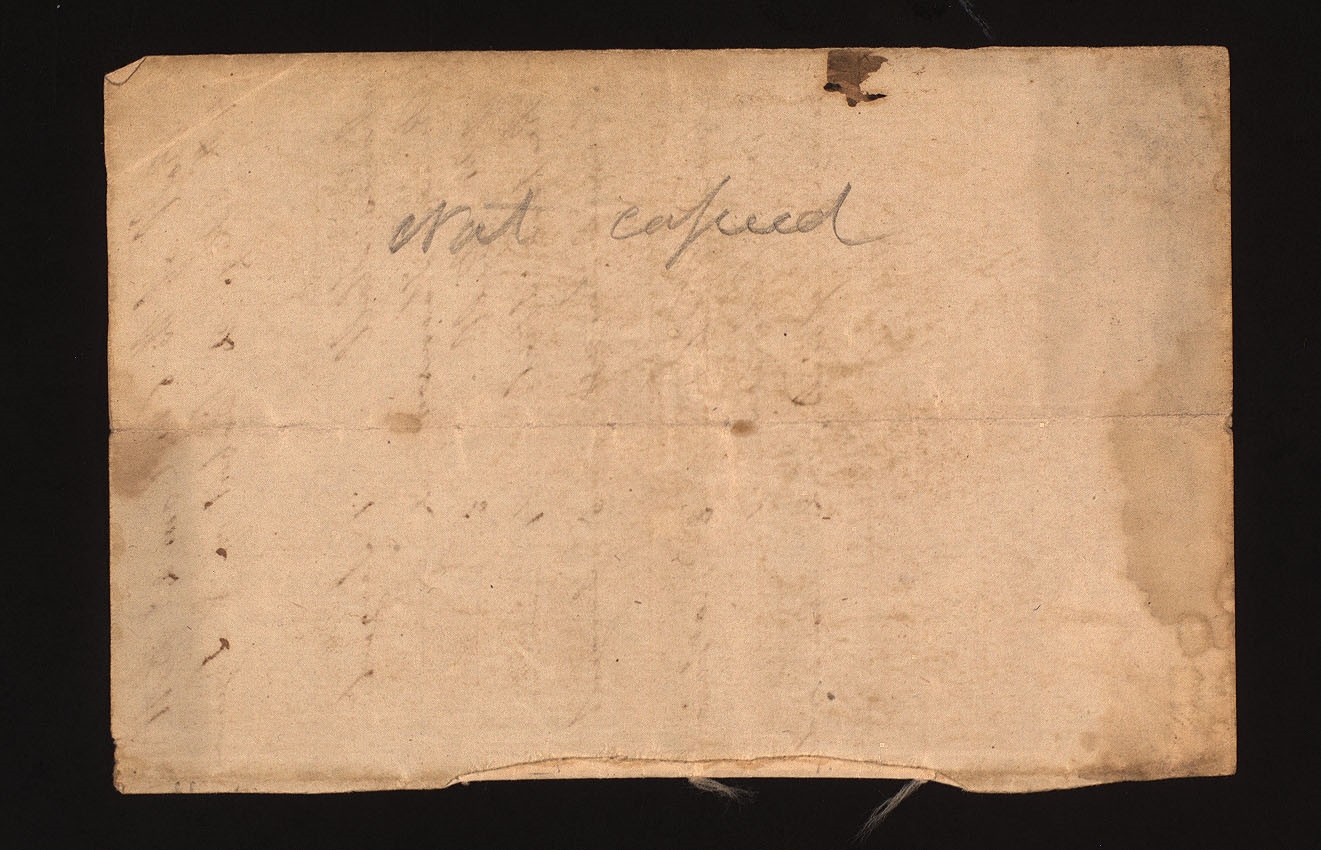 Not copied